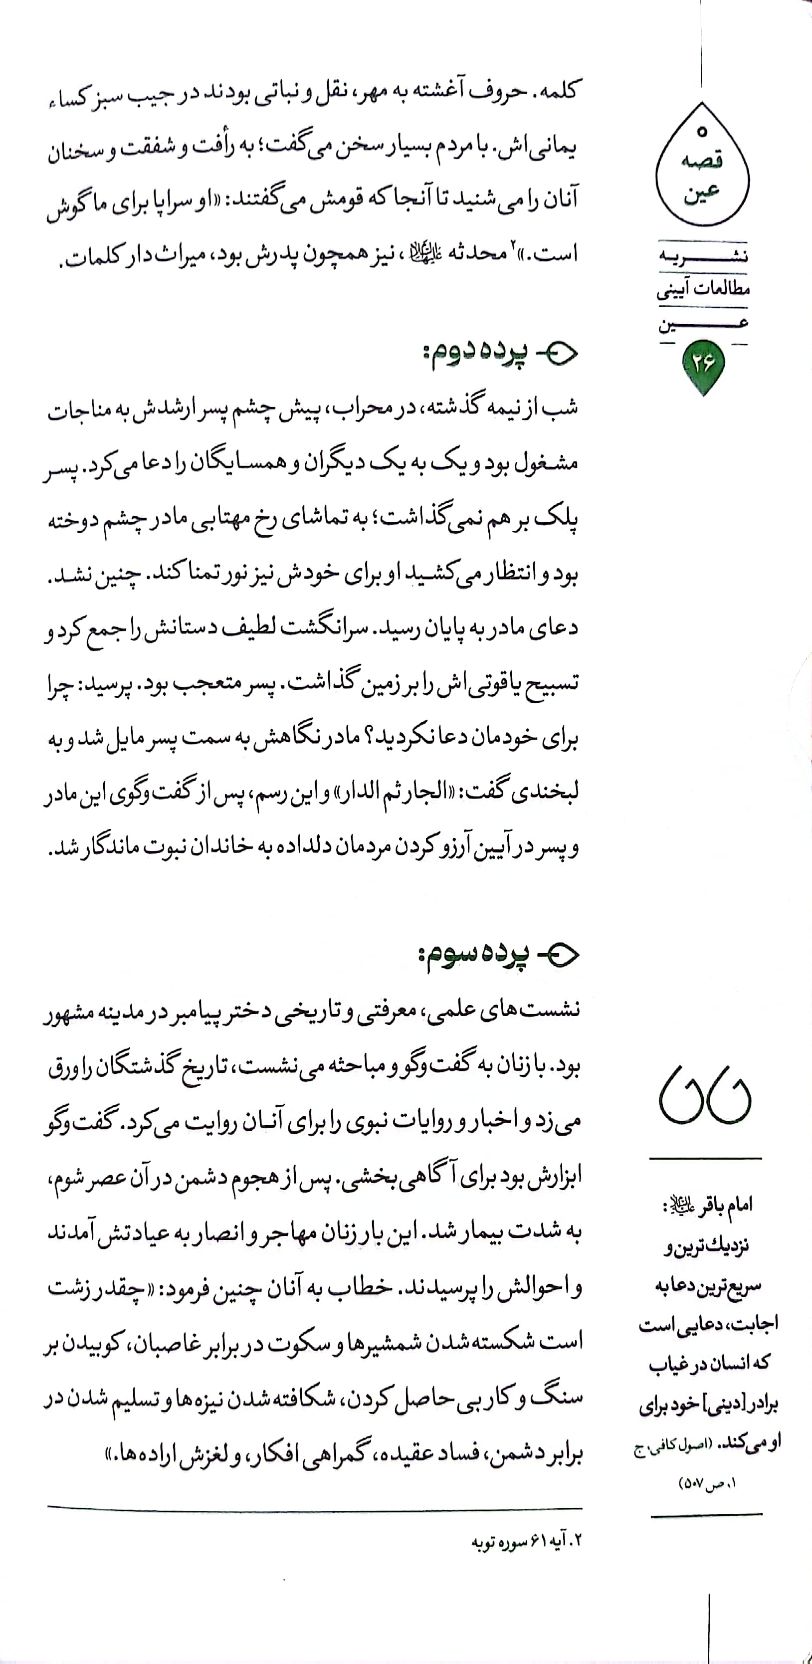 کلمه. حروف آغشته به مهر، نقل و نباتی بودند در جیب سبز کساء
یمانی‌اش. با مردم بسیار سخن می‌گفت؛ به رأفت و شفقت و سخنان
آنان را می‌شنید تا آنجا که قومش می‌گفتند: «او سراپا برای ما گوش
است.»۲ محدثه علیهاالسلام، نیز همچون پدرش بود، میراث‌دار کلمات.
پرده دوم:
شب از نیمه گذشته، در محراب، پیش چشم پسر ارشدش به مناجات
مشغول بود و یک به یک دیگران و همسایگان را دعا می‌کرد. پسر
پلک بر هم نمی‌گذاشت؛ به تماشای رخ مهتابی مادر چشم دوخته
بود و انتظار می‌کشید او برای خودش نیز نور تمنا کند. چنین نشد.
دعای مادر به پایان رسید. سرانگشت لطیف دستانش را جمع کرد و
تسبیح یاقوتی‌اش را بر زمین گذاشت. پسر متعجب بود. پرسید: چرا
برای خودمان دعا نکردید؟ مادر نگاهش به سمت پسر مایل شد و به
لبخندی گفت: «الجار ثم الدار» و این رسم، پس از گفت‌وگوی این مادر
و پسر در آیین آرزو کردن مردمان دلداده به خاندان نبوت ماندگار شد.
پرده سوم:
نشست‌های علمی، معرفتی و تاریخی دختر پیامبر در مدینه مشهور
بود. با زنان به گفت‌وگو و مباحثه می‌نشست، تاریخ گذشتگان را ورق
می‌زد و اخبار و روایات نبوی را برای آنان روایت می‌کرد. گفت‌وگو
ابزارش بود برای آگاهی‌بخشی. پس از هجوم دشمن در آن عصر شوم،
به شدت بیمار شد. این بار زنان مهاجر و انصار به عیادتش آمدند
و احوالش را پرسیدند. خطاب به آنان چنین فرمود: «چقدر زشت
است شکسته شدن شمشیرها و سکوت در برابر غاصبان، کوبیدن بر
سنگ و کار بی حاصل کردن، شکافته شدن نیزه‌ها و تسلیم شدن در
برابر دشمن، فساد عقیده، گمراهی افکار، و لغزش اراده‌ها.»
۲. آیه ۶۱ سوره توبه
قصه
عین
نشریه
مطالعات آیینی
عین
۲۶
امام باقر علیه‌السلام:
نزدیک‌ترین و
سریع‌ترین دعا به
اجابت، دعایی است
که انسان در غیاب
برادر [دینی] خود برای
او می‌کند. (اصول کافی، ج
۱، ص ۵۰۷)